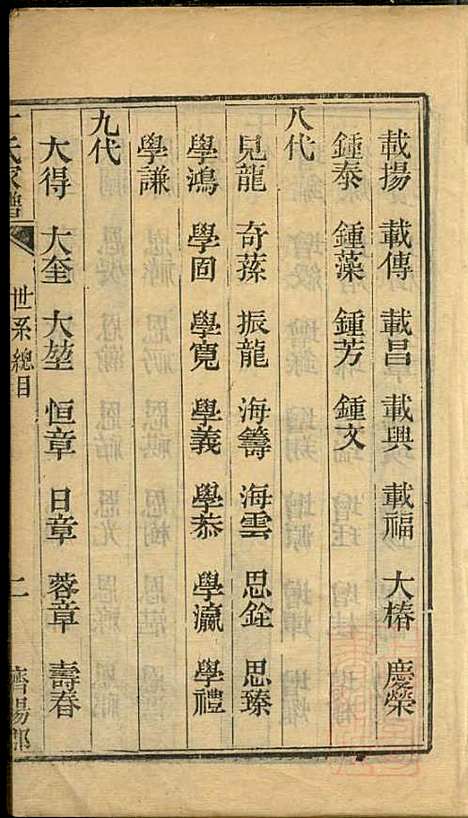 載揚 載傳 載昌 載興 載福 大椿 慶榮
鍾泰 鍾藻 鍾芳 鍾文
八代
見龍 奇蓀 振龍 海籌 海雲 思銓 思臻
學鴻 學固 學寬 學義 學恭 學瀛 學禮
學謙
九代
大得 大奎 大堃 恒章 日章 蓉章 壽春
氏家譜 世系總目 二 濟陽郡